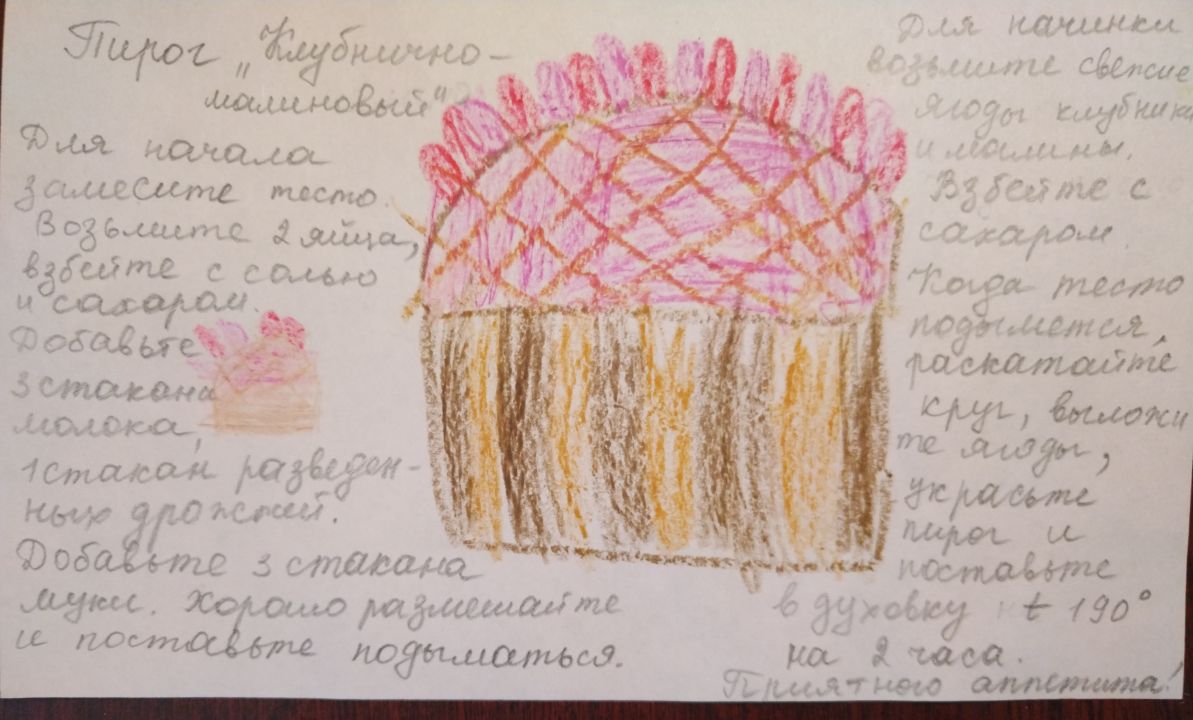 Пирог „Клубнично-
малиновый"
Для начала
замесите тесто.
Возьмите 2 яйца,
взбейте с солью
и сахаром.
Добавьте
3 стакана
молока,
1 стакан разведен-
ных дрожжей.
Добавьте 3 стакана
муки. Хорошо размешайте
и поставьте подыматься.
Для начинки
возьмите свежие
ягоды клубники
и малины.
Взбейте с
сахаром.
Когда тесто
подымется,
раскатайте
круг, выложи
те ягоды,
украсьте
пирог и
поставьте
в духовку t 190°
на 2 часа.
Приятного аппетита!